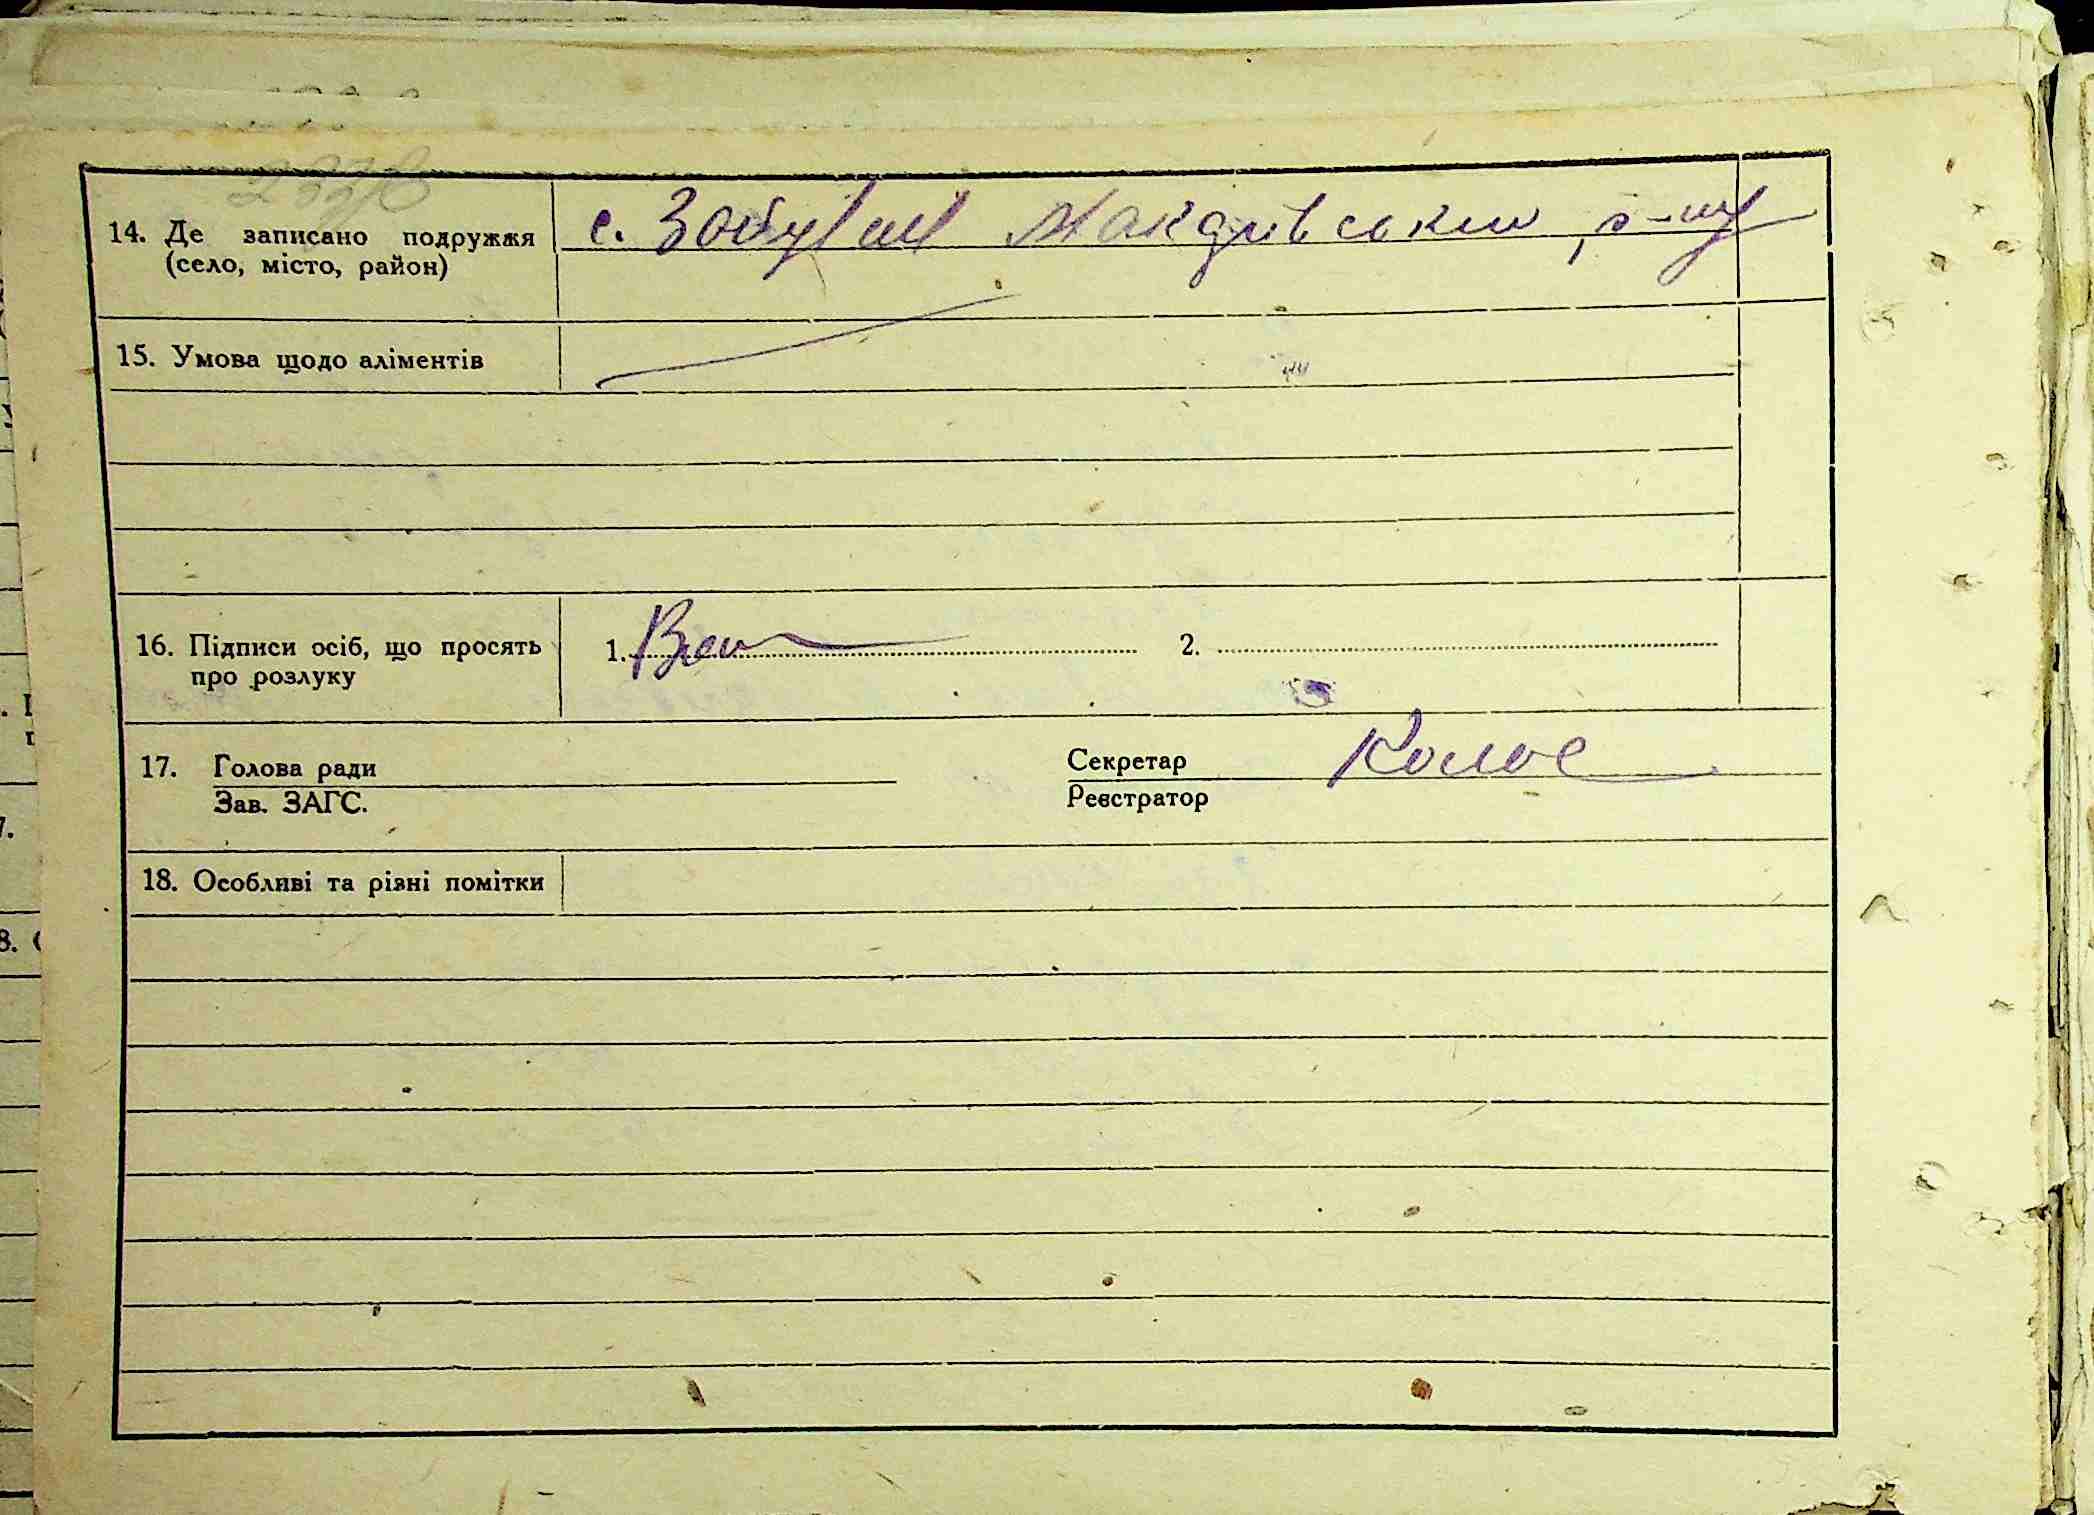 14. Де записано подружжя с. Забуяння Макарівського р-ну
(село, місто, район)
15. Умова щодо аліментів
16. Підписи осіб, що просять 1. 2.
про розлуку
17. Голова ради Секретар
Зав. ЗАГС. Реєстратор
18. Особливі та різні помітки